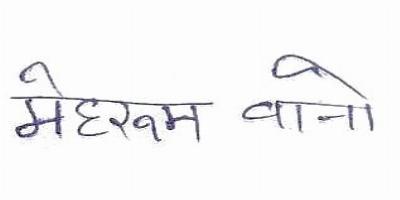 मेहरूम वानो